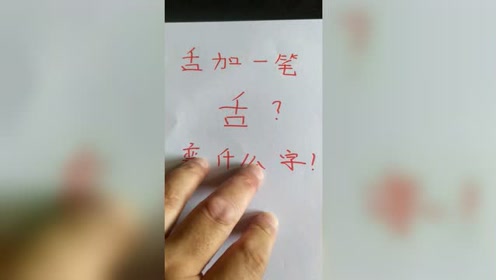 舌加一笔
舌？
变什么字！